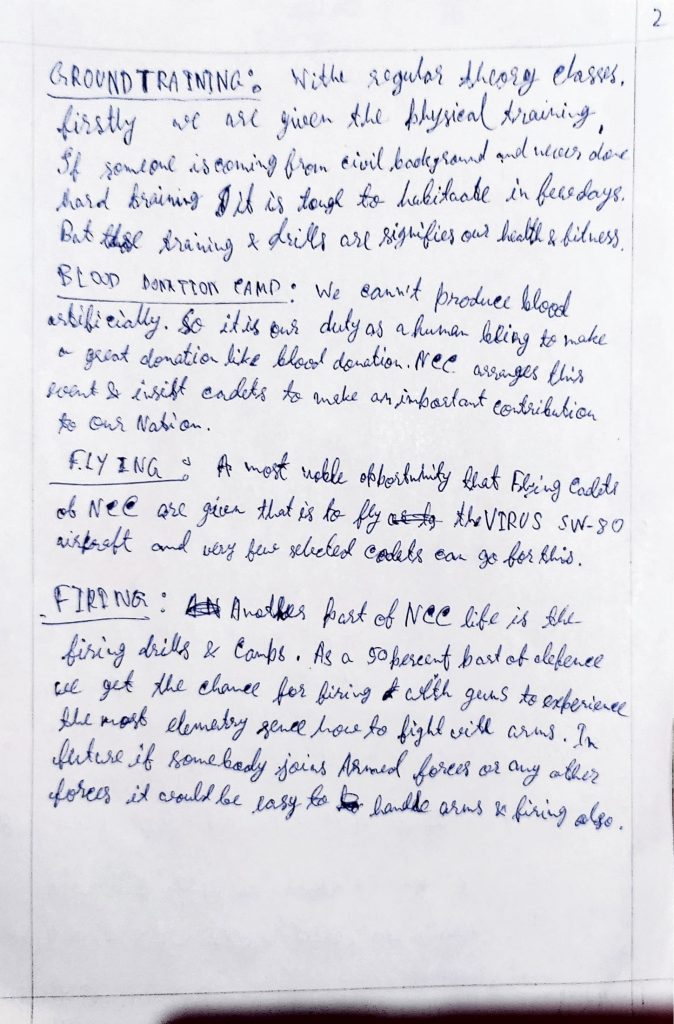 2
GROUND TRAINING: Withe regular theory classes,
firstly we are given the physical training,
If someone is coming from civil background and never done
hard training it is tough to habitaate in few days.
But training & drills are signifies our health & fitness.
BLOOD DONATION CAMP: We cann't produce blood
artificially. So it is our duty as a human being to make
a great donation like blood donation. NCC arranges this
event & insist cadets to make an important contribution
to our Nation.
FLYING: A most noble opportunity that Flying Cadets
of NCC are given that is to fly the VIRUS SW-80
aircraft and very few selected Cadets can go for this.
FIRING: Another part of NCC life is the
firing drills & Camps. As a 50 percent part of defence
we get the chance for firing with guns to experience
the most elemetry sence how to fight with arms. In
future if somebody joins Armed forces or any other
forces it would be easy to handle arms & firing also.